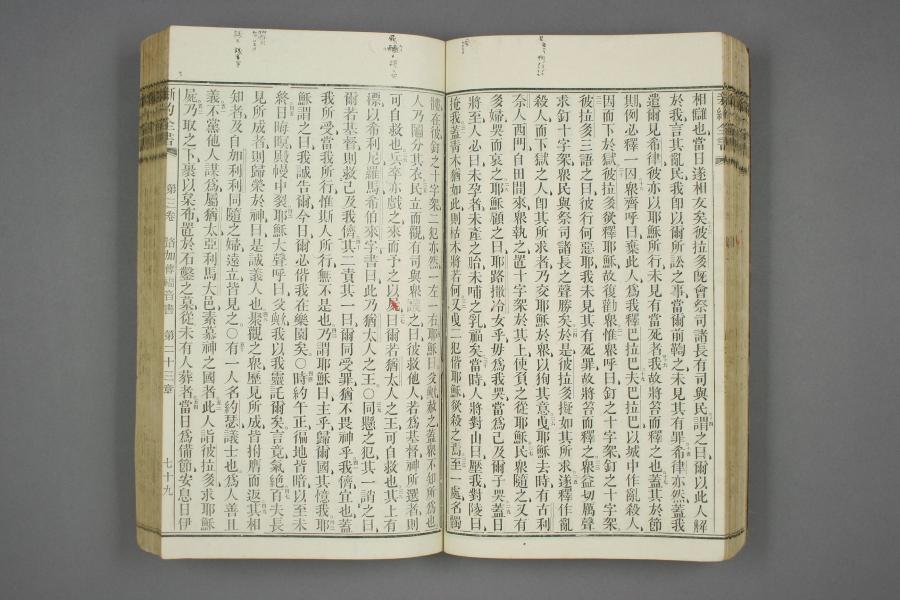 相讎也當日遂相友矣彼拉多旣會祭司諸長有司與民謂之曰爾以此人解
於我言其亂民我卽以爾所訟之事當爾前鞫之未見其有罪希律亦然蓋我
遣爾見希律彼亦以耶穌所行未見有當死者我故將笞而釋之也蓋其於節
期例必釋一囚衆齊呼曰棄此人爲我釋巴拉巴夫巴拉巴以城中作亂殺人
因而下於獄彼拉多欲釋耶穌故復勸衆惟衆呼曰釘之十字架釘之十字架
彼拉多三語之曰彼行何惡耶我未見其有死罪故將笞而釋之衆益切厲聲
求釘十字架衆民與祭司諸長之聲勝矣於是彼拉多擬如其所求遂釋作亂
殺人而下獄之人卽其所求者乃交耶穌於衆以狥其意曳耶穌去時有古利
奈人西門自田間來衆執之置十字架於其上使負之從耶穌民衆隨之又有
多婦哭而哀之耶穌顧之曰耶路撒冷女乎毋爲我哭當爲己及爾子哭蓋日
將至人必曰未孕者未產之胎未哺之乳福矣當時人將對山曰壓我對陵曰
掩我蓋靑木猶如此則枯木將若何又曳二犯偕耶穌欲殺之焉至一處名髑
髏在彼釘之十字架二犯亦然一左一右耶穌曰父歟赦之蓋衆不知所爲也
人乃鬮分其衣民立而觀有司與衆譏之曰彼救他人若爲基督神所選者則
可自救也兵卒亦戲之來而予之以曰爾若猶太人之王可自救也其上有
標以希利尼羅馬希伯來字書曰此乃猶太人之王○同懸之犯其一誚之曰
爾若基督則救己及我儕其二責其一曰爾同受罪猶不畏神乎我儕宜也蓋
我所受當我所行惟斯人所行無不是也乃謂耶穌曰主乎歸爾國其憶我耶
穌謂之曰我誠告爾今日爾必偕我在樂園矣○時約午正徧地皆暗以至未
終日晦冥殿幔中裂耶穌大聲呼曰父歟我以我靈託爾矣言竟氣絕百夫長
見所成者則歸榮於神曰是誠義人也聚觀之衆歷見所成皆拊膺而返其相
知者及自加利利同隨之婦遠立皆見之○有一人名約瑟議士也爲人善且
義不黨他人謀爲屬猶太亞利馬大邑素慕神之國者此人詣彼拉多求耶穌
屍乃取之下裹以枲布置於石鑿之墓從未有人葬者當日爲備節安息日伊
新約全書 第三卷 路加傳福音書 第二十三章 七十九